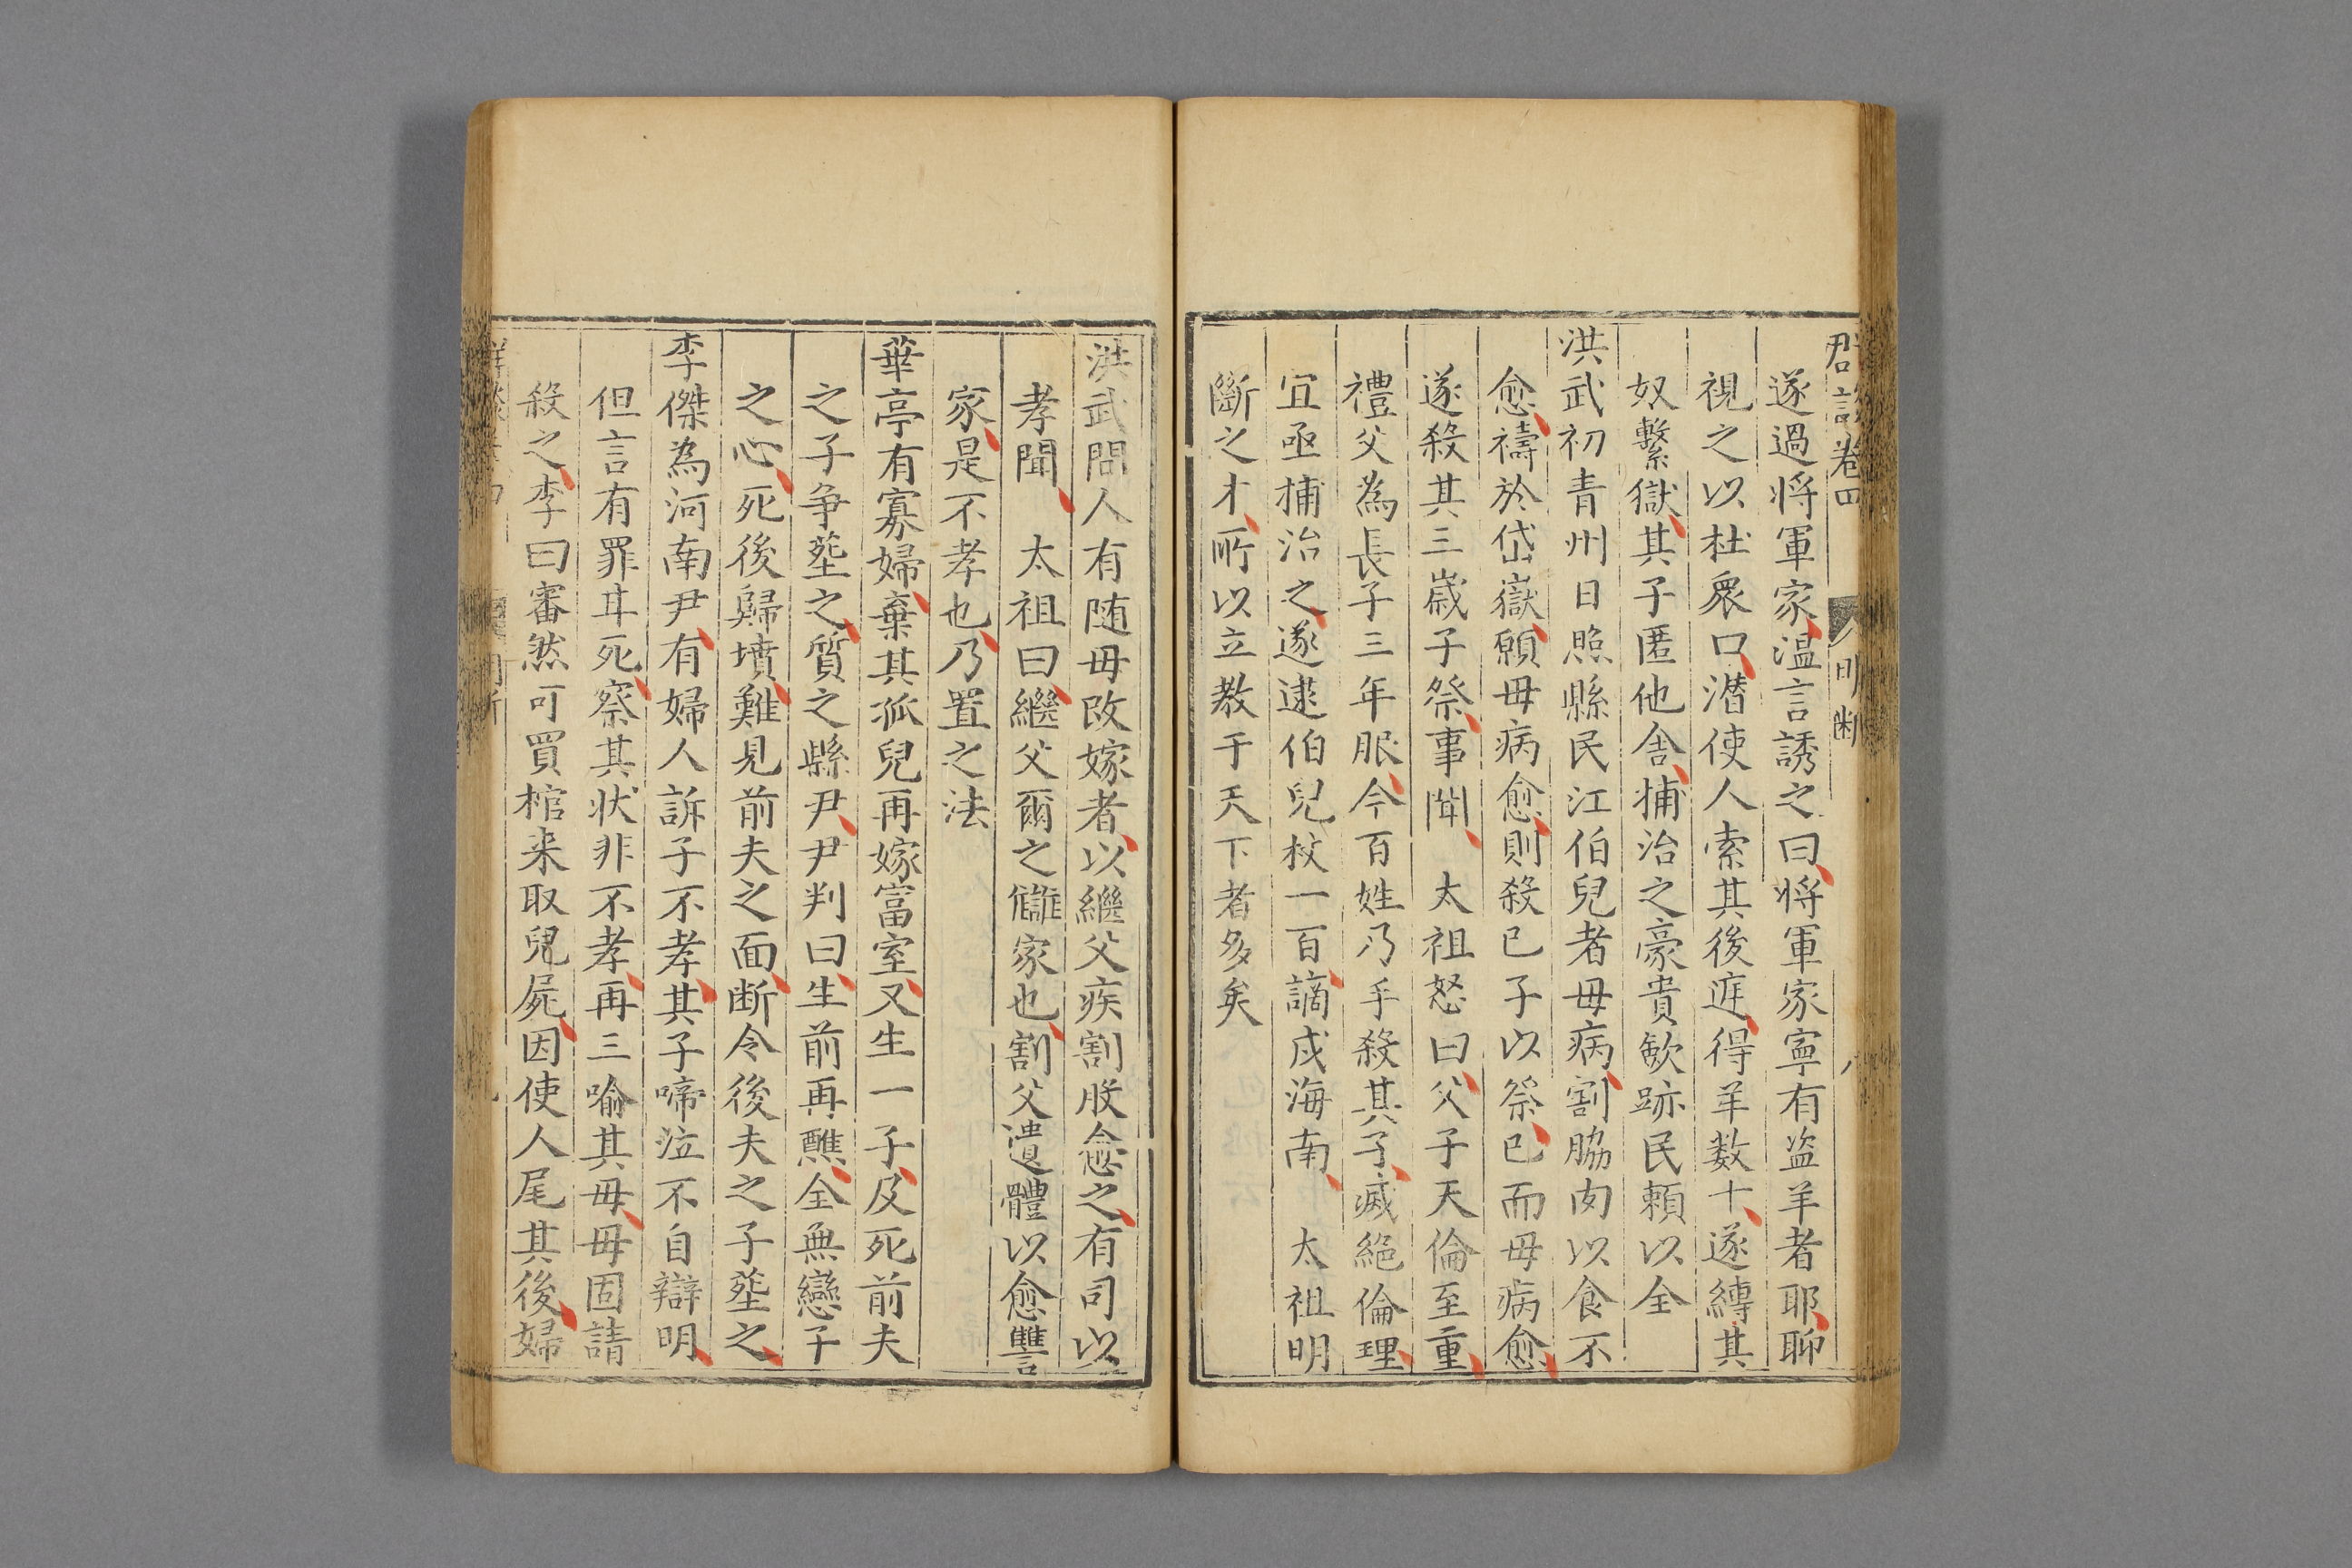 群談卷四 明斷 八
遂過将軍家温言誘之曰将軍家寧有盗羊者耶聊
視之以杜衆口潜使人索其後遅得羊数十遂縛其
奴繫獄其子匿他舎捕治之豪貴歛跡民頼以全
洪武初青州日照縣民江伯兒者毋病割脇肉以食不
愈禱於岱嶽願毋病愈則殺已子以祭已而毋病愈
遂殺其三歳子祭事聞 太祖怒曰父子天倫至重
禮父為長子三年服今百姓乃手殺其子滅絕倫理
宜亟捕治之遂逮伯兒杖一百謫戍海南 太祖明
斷之才所以立教于天下者多矣
洪武間人有随毋改嫁者以繼父疾割股愈之有司以
孝聞 太祖曰繼父爾之讎家也割父遺體以愈讐
家是不孝也乃置之法
華亭有寡婦棄其孤兒再嫁富室又生一子及死前夫
之子争塟之質之縣尹尹判曰生前再醮全無戀子
之心死後歸墳難見前夫之面断令後夫之子塟之
李傑為河南尹有婦人訴子不孝其子啼泣不自辯明
但言有罪甘死察其状非不孝再三喻其毋毋固請
殺之李曰審然可買棺来取兒屍因使人尾其後婦